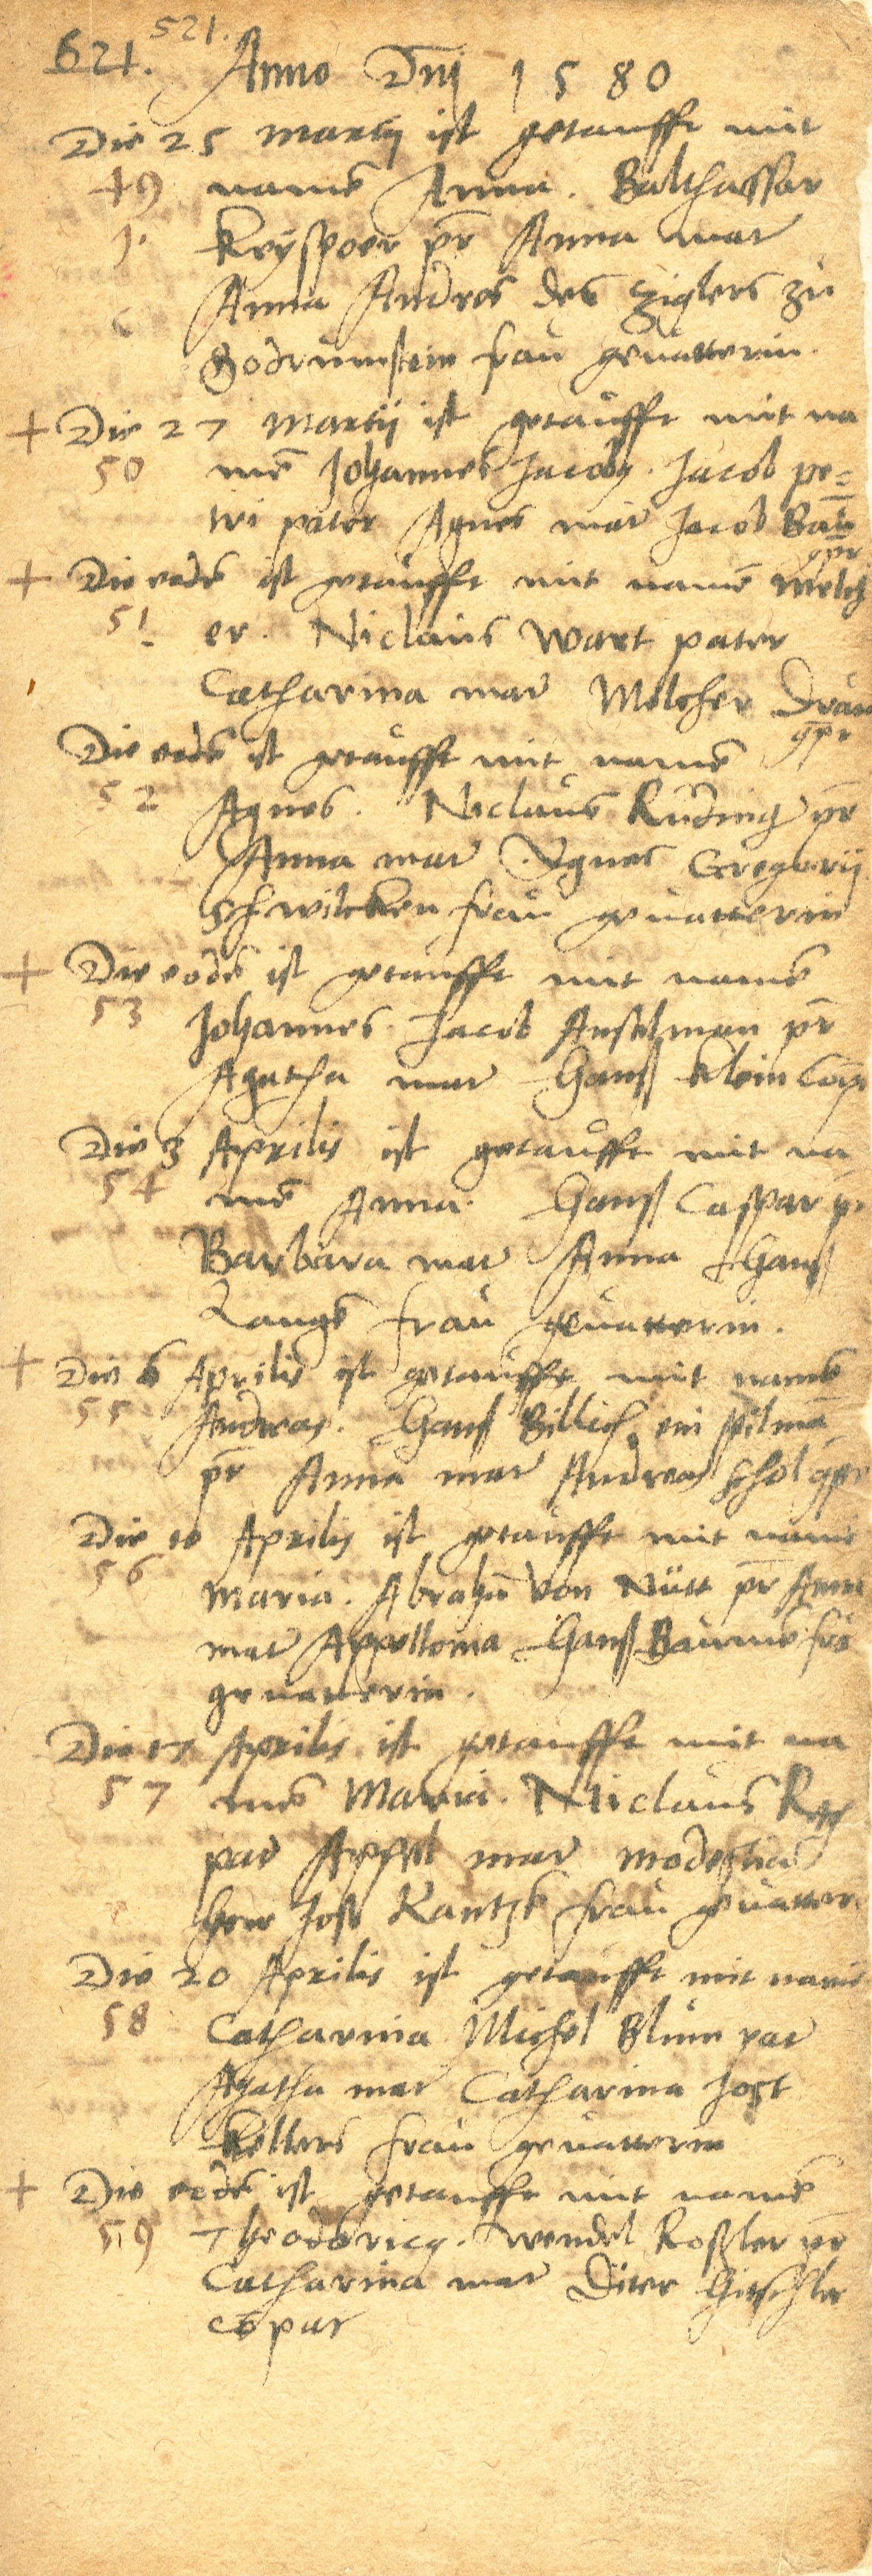 621. 521. Anno Dnj 1580
Die 25 Martij ist getaufft mit
49 namē Anna. Balthassar
1. Kryspoer pr̄ Anna mar
Anna Andres des Ziglers zu
Godrumstein frau geuatterin.
+ Die 27 Martij ist getaufft mit na
50 mē Johannes Jacoby. Jacob pe=
tri pater Agnes mar Jacob
gpr
+ Die eodē ist getaufft mit namē Melch
51 er. Niclaus Wart pater
Catharina mar Melcher
gpr
Die eodē ist getaufft mit namē
52 Agnes. Niclaus Ruding pr̄
Anna mar Agnes Gregorij
Schwilcken frau geuatterin
+ Die eodē ist getaufft mit namē
53 Johannes. Jacob Anstelman pr̄
Agatha mar Hanß Klein Comp
Die 3 Aprilis ist getaufft mit na
54 mē Anna. Hanß Caspar p
Barbara mar Anna Hanß
Langē frau geuatterin.
+ Die 6 Aprilis ist getaufft mit namē
55 Andreas. Hanß Billich ein spilmā
pr̄ Anna mar Andreas Schol gpr
Die 10 Aprilis ist getaufft mit namē
56 Maria. Abrahā von Nütt pr̄ Anna
mar Appollonia Hanß Baumē
geuatterin.
Die 17 Aprilis ist getaufft mit na
57 mē Maria. Niclaus
par Appel mar modestia
Jost Kantzē frau geuatter
Die 20 Aprilis ist getaufft mit namē
58 Catharina Michel Blum par
Agatha mar Catharina Jost
Kellers frau geuatterin
+ Die eodē ist getaufft mit namē
59 Theodoricg. Wendel Roßler pr̄
Catharina mar Diter Hirschler
cōpar